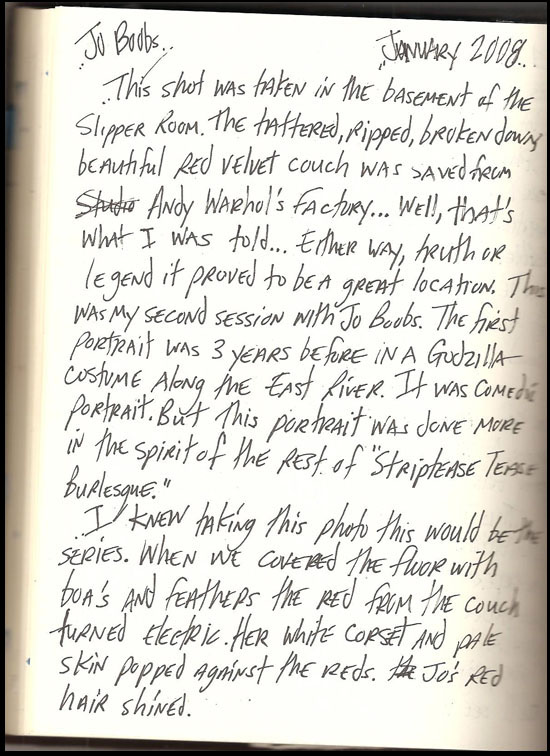 Jo Boobs.. January 2008..
This shot was taken in the basement of the
Slipper Room. The tattered, ripped, broken down,
beautiful red velvet couch was saved from
Studio Andy Warhol's Factory... Well, that's
what I was told... Either way, truth or
legend it proved to be a great location. This
was my second session with Jo Boobs. The first
portrait was 3 years before in a Godzilla
costume along the East River. It was comedic
portrait. But this portrait was done more
in the spirit of the rest of "Striptease Tease
Burlesque."
I knew taking this photo this would be the
series. When we covered the floor with
boa's and feathers the red from the couch
turned electric. Her white corset and pale
skin popped against the reds. Jo's red
hair shined.